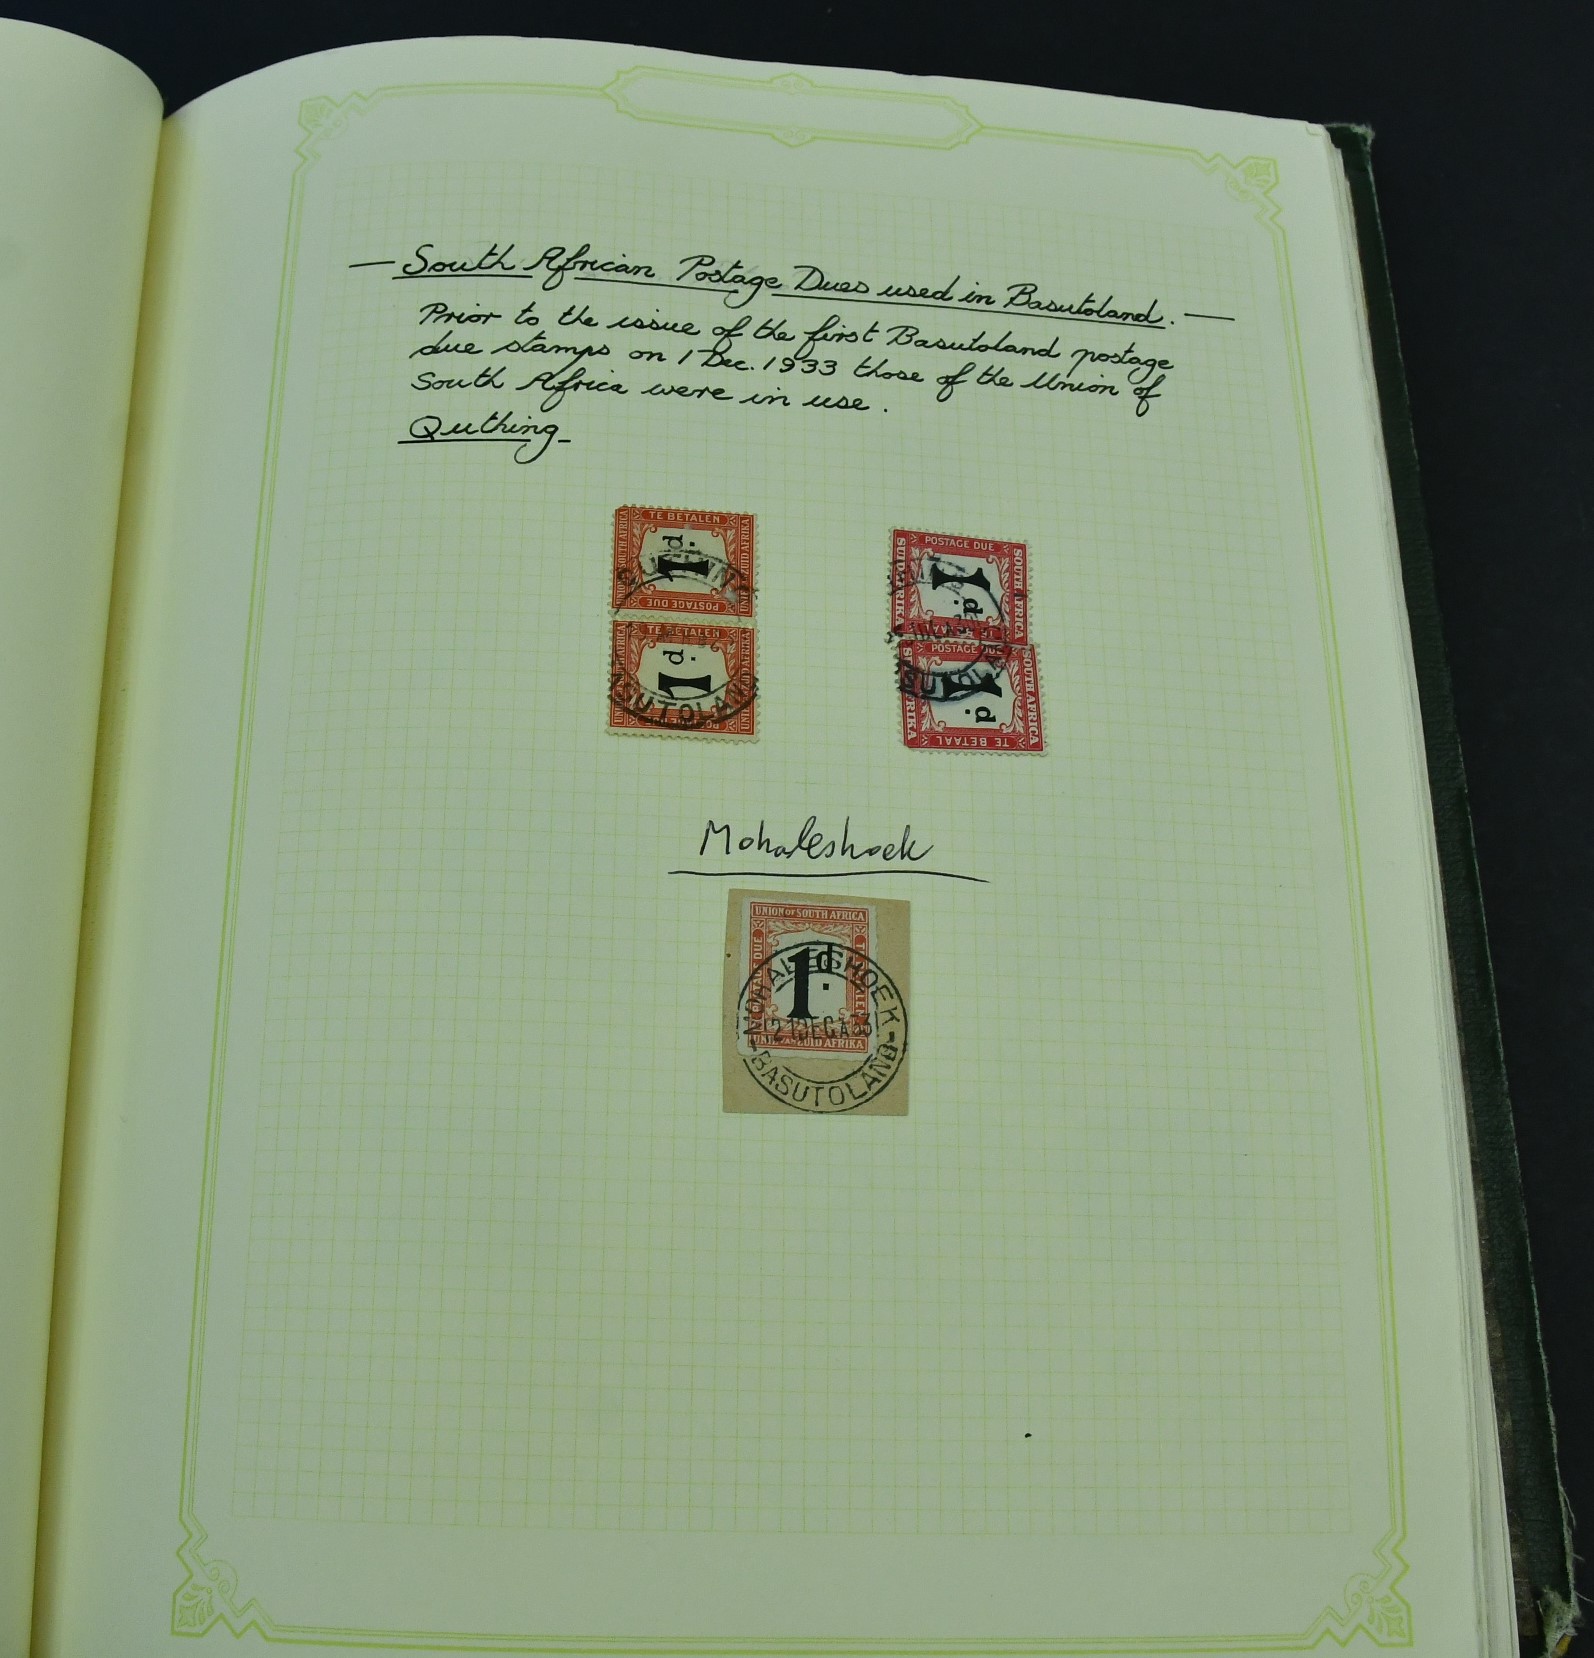 — South African Postage Dues used in Basutoland. —
Prior to the issue of the first Basutoland postage
due stamps on 1 Dec. 1933 those of the Union of
South Africa were in use.
Quthing
TE BETALEN
UNION OF SOUTH AFRICA
1d.
POSTAGE DUE
TE BETALEN
1d.
POSTAGE DUE
POSTAGE DUE
SUID-AFRIKA
SOUTH AFRICA
1d.
TE BETAAL
POSTAGE DUE
SUID-AFRIKA
SOUTH AFRICA
1d.
TE BETAAL
Mohaleshoek
UNION OF SOUTH AFRICA
POSTAGE DUE
1d.
TE BETALEN
UNIE VAN ZUID AFRIKA
MOHALESHOEK
BASUTOLAND